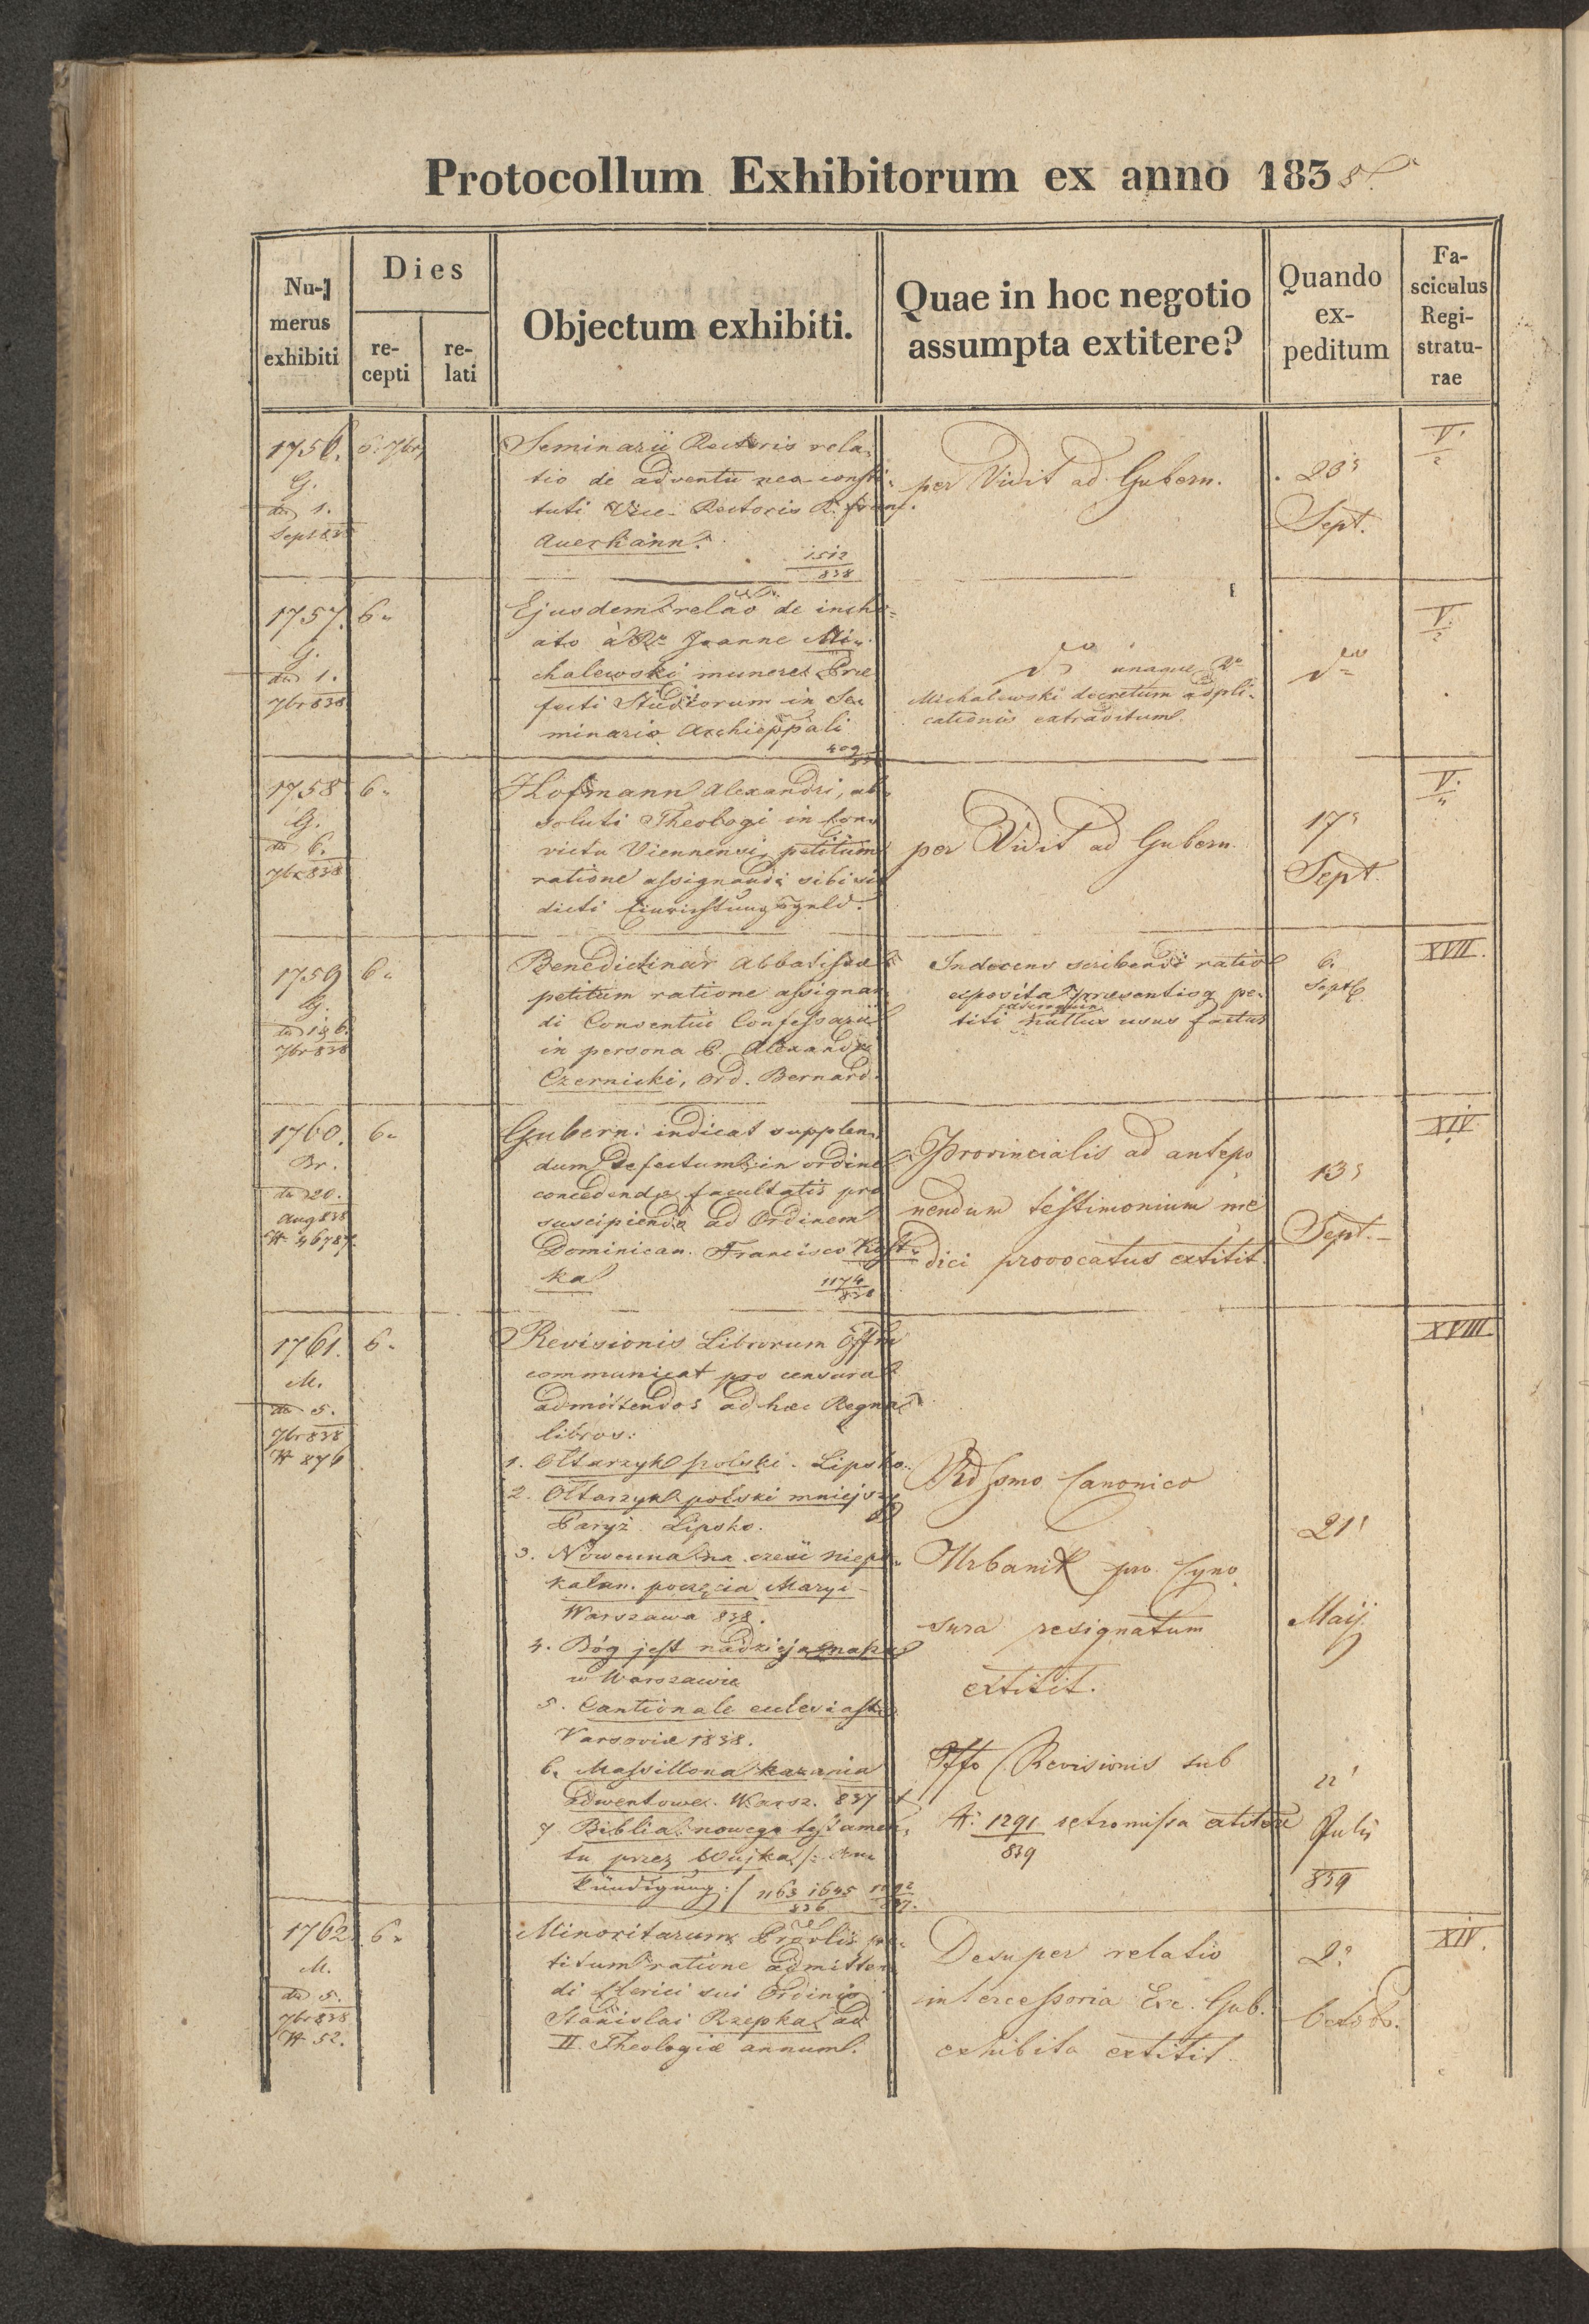 Protocollum Exhibitorum ex anno 1838.
Nu-
merus
exhibiti
Dies
re-
cepti
re-
lati
Objectum exhibiti.
Quae in hoc negotio
assumpta extitere?
Quando
ex-
peditum
Fa-
sciculus
Regi-
stratu-
rae
1756.
G.
dto 1.
Sept 838
6. 7br
Seminarii Rectoris rela-
tio de adventu neo consti-
tuti Vice-Rectoris R. Franc.
Auerhann.
1512
838
per Vidit ad Gubern.
28
Sept.
V.
1757.
G.
dto 1.
7br 838
6.
Ejusdem relao de incho-
ato à Rdo Joanne Mi-
chalewski munere Prae
fecti Studiorum in Se-
minario Archieppali
409
dto unaque Rdo
Michalewski decretum
extraditum.
dto
V.
1758
G.
dto 6.
7br 838
6.
Hofmann Alexandri, ab-
soluti Theologi in Con-
victu Viennensi, petitum
ratione assignandi sibi sic
dicti Einrichtungsgeld.
per Vidit ad Gubern.
17
Sept.
V.
1759
G.
7br 838
6.
Benedictinar Abbatissae
petitum ratione assignan-
di Conventui Confessarii
in persona P. Alexandri
Czernicki, Ord. Bernard.
Indecens scribendi ratio
exposita pe-
titi nullus usus factus
6.
Septb
XVII.
1760.
Br.
dto 20.
Aug 838
№ 46787
6.
Gubern. indicat supplen-
dum defectum in ordine
concedendae facultatis pro
suscipiendo ad Ordinem
Dominican. Francisco Kost-
ka
1174
838
Provincialis ad antepo
nendum testimonium me
dici provocatus extitit.
13
Sept.
XIV.
1761.
M.
dto 5.
7br 838
№ 876
6.
Revisionis Librorum Offm
communicat pro censura
admittendos ad haec Regna
libros:
1. Ołtarzyk polski. Lipsko.
2. Ołtarzyk polski mniejszy
Paryż. Lipsko.
3. Nowenna na cześć niepo-
kalan. poczęcia Maryi
Warszawa 838.
4. Bóg jest nadzieją
w Warszawie
5. Cantionale ecclesiast.
Varsoviae 1838.
6. Massillona kazania
Adwentowe. Warsz. 837
7. Biblia nowego testamen-
tu przez Wujka /: An-
kündigung :/ 1163 1645
836
Rdssmo Canonico
Urbanik pro Cyno
sura resignatum
extitit.
Offo Revisionis sub
№ 1291 retromissa extitere
839
21
Maij
22
Julii
839
XVIII.
1762.
M.
dto 5.
7br 838
№ 52.
6.
Minoritarum Provlis pe-
titum ratione admitten-
di Clerici sui Ordinis
Stanislai Rzepka ad
II. Theologiae annum.
Desuper relatio
intercessoria Exc. Gub.
exhibita extitit.
2.
Octob.
XIV.